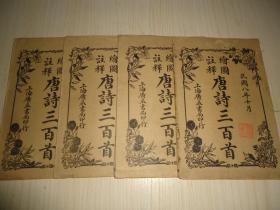 繪圖
註釋
唐詩三百首
上海廣益書局印行
繪圖
註釋
唐詩三百首
上海廣益書局印行
繪圖
註釋
唐詩三百首
上海廣益書局印行
民國八年十月
繪圖
註釋
唐詩三百首
上海廣益書局印行